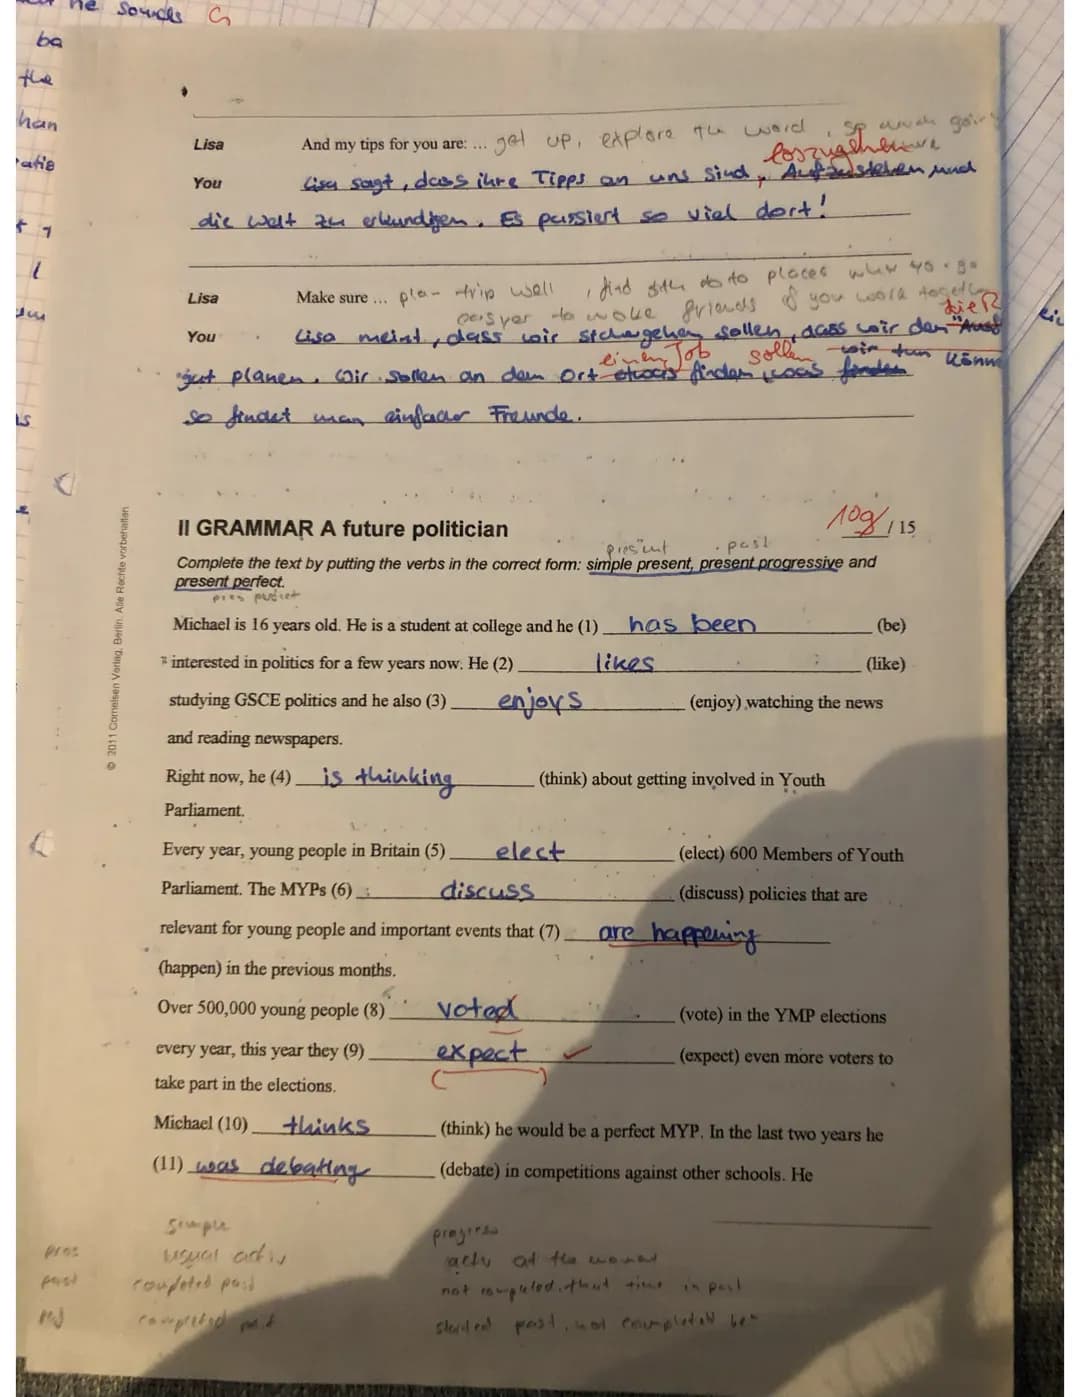 he sounds G
ba
the
han
Lisa And my tips for you are: ... get up, explore the word, so much going
loszugehen
You Lisa sagt, dass ihre Tipps an uns sind, Aufzustehen und
die Welt zu erkundigen. Es passiert so viel dort!
Lisa Make sure ... plan trip well, find to places when go
to make friends if you work together
die R
You Lisa meint, dass wir sichergehen sollen, dass wir den
einen Job sollen wir tun könn
gut planen. Wir sollen an dem Ort etwas finden was finden
so findet man einfacher Freunde.
© 2011 Cornelsen Verlag, Berlin. Alle Rechte vorbehalten.
II GRAMMAR A future politician 10g / 15
present past
Complete the text by putting the verbs in the correct form: simple present, present progressive and
present perfect.
Michael is 16 years old. He is a student at college and he (1) has been (be)
interested in politics for a few years now. He (2) likes (like)
studying GSCE politics and he also (3) enjoys (enjoy) watching the news
and reading newspapers.
Right now, he (4) is thinking (think) about getting involved in Youth
Parliament.
Every year, young people in Britain (5) elect (elect) 600 Members of Youth
Parliament. The MYPs (6) discuss (discuss) policies that are
relevant for young people and important events that (7) are happening
(happen) in the previous months.
Over 500,000 young people (8) voted (vote) in the YMP elections
every year, this year they (9) expect (expect) even more voters to
take part in the elections.
Michael (10) thinks (think) he would be a perfect MYP. In the last two years he
(11) was debating (debate) in competitions against other schools. He
simple progress
pres usual activ activ at the moment
past completed past not completed that time in past
completed started past, not completed